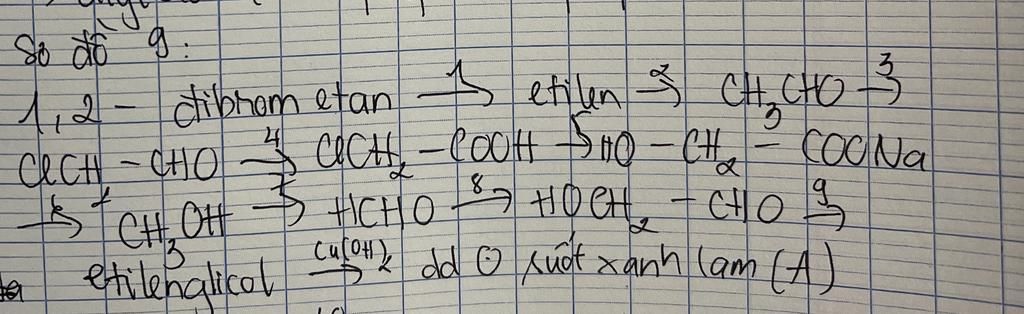 Sơ đồ 9:
1,2 - đibrom etan →1 etilen →2 CH3CHO →3
ClCH2 - CHO →4 ClCH2 - COOH →5 HO - CH2 - COONa
→6 CH3OH →7 HCHO →8 HOCH2 - CHO →9
etilenglicol →Cu(OH)2 dd suốt xanh lam (A)